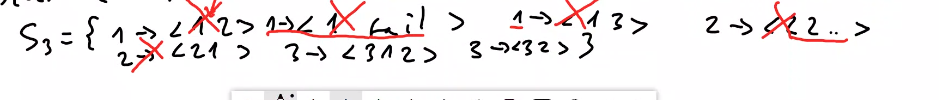 S₃ = { 1 → <1 2> 1 → <1 fail> 1 → <1 3> 2 → <2 ... >
2 → <21> 3 → <312> 3 → <32> }